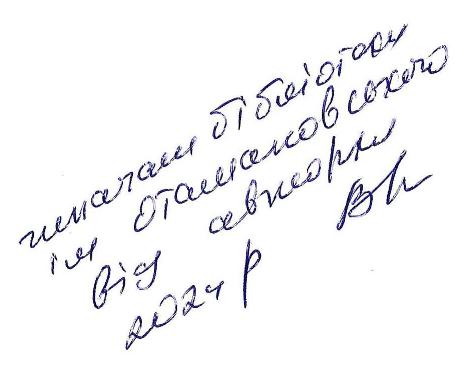 читачам бібліотеки
ім Отамановського
від авторки
2024 р